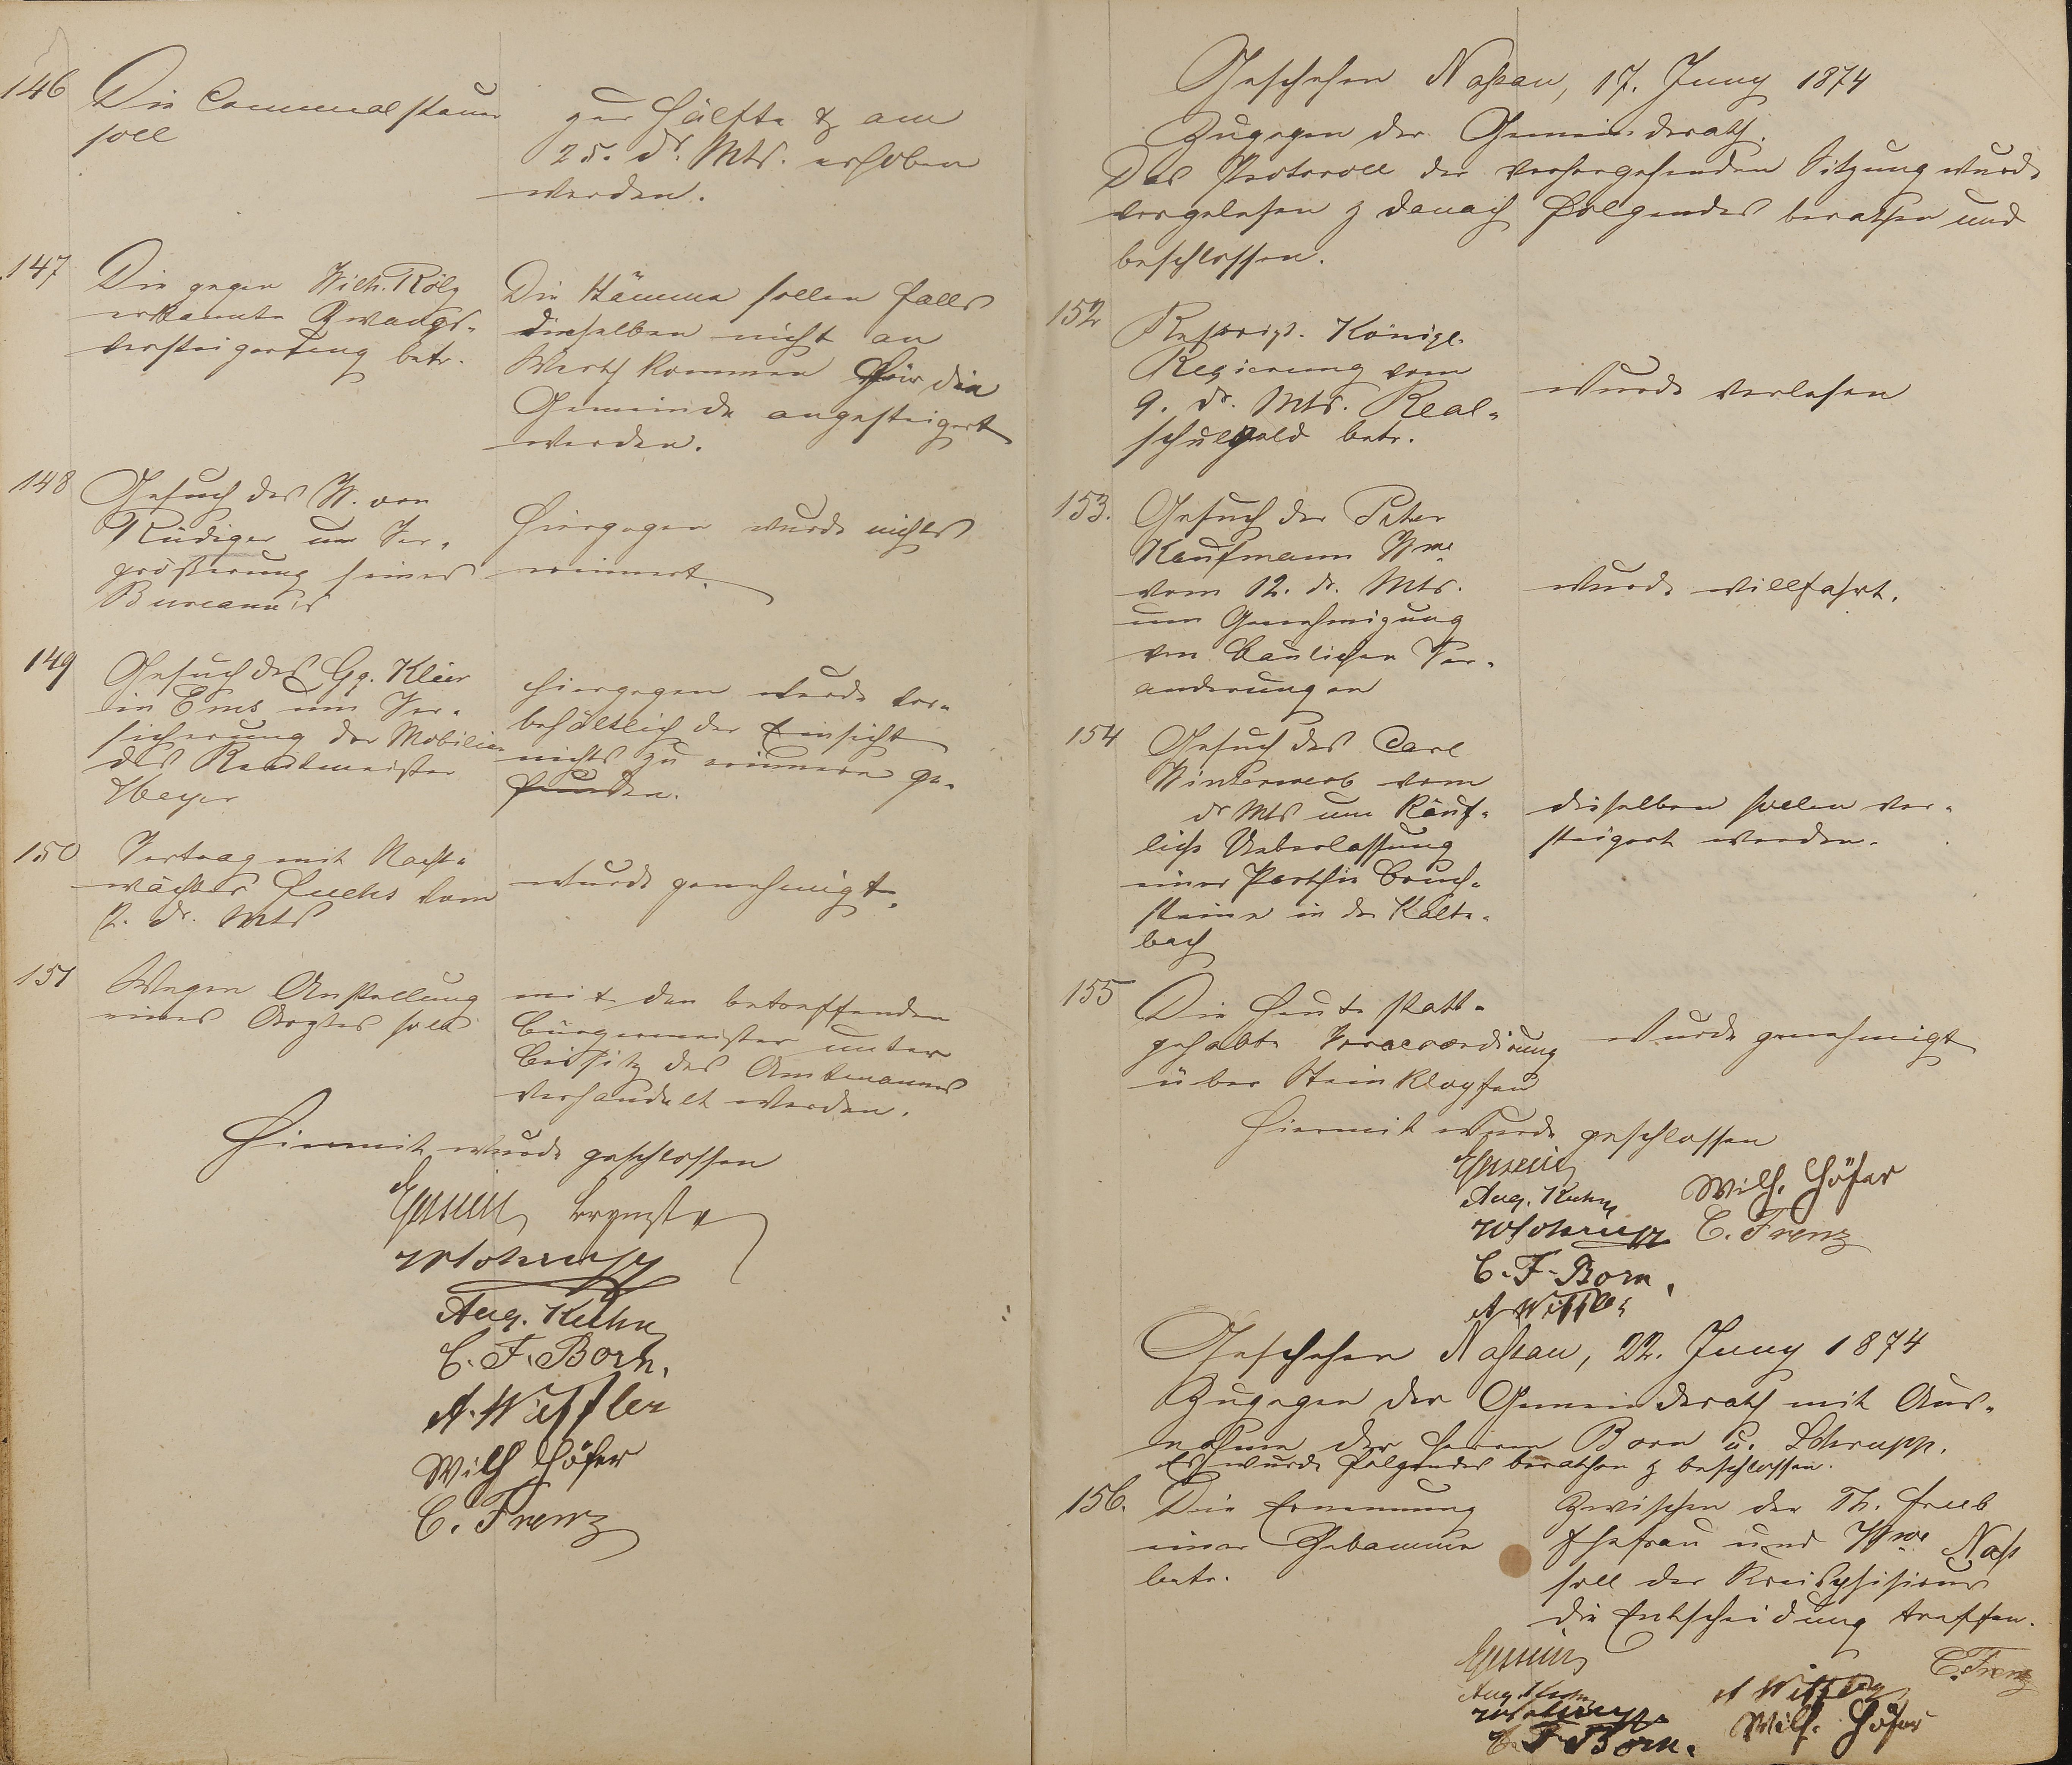 146
Die Communalsteuer
soll
zur Hälfte & am
25. ds. Mts. erhoben
werden.
147
Die gegen Wilh. Rölz
erkannte Zwangs-
versteigerung betr.
Die Stämme sollen falls
dieselben nicht an
Werth kommen für die
Gemeinde angesteigert
werden.
148
Gesuch des W. von
Rüdiger um Ver-
größerung seines
Bureaus
Hiergegen wurde nichts
erinnert.
149
Gesuch des Gg. Klein
in Ems um Ver-
sicherung der Mobilien
des Rentmeister
Meyer
Hiergegen wurde vor-
behältlich der Einsicht
nichts zu erinnern ge-
funden.
150
Vertrag mit Nacht-
wächter Fuchs vom
2. ds. Mts
wurde genehmigt.
151
Wegen Anstellung
eines Arztes soll
mit den betreffenden
Bürgermeister unter
Beisitz des Amtmannes
verhandelt werden.
Hiermit wurde geschlossen
Aug. Kuhn
C. F. Born.
A. Wiffler
Wilh Höfer
C. Frenz
Geschehen Nassau, 17. Juny 1874
Zugegen der Gemeinderath.
Das Protocoll der vorhergehenden Sitzung wurde
vorgelesen & danach Folgendes berathen und
beschlossen.
152
Rescript. Königl.
Regierung vom
9. ds. Mts. Real-
schulgeld betr.
wurde verlesen
153.
Gesuch der Peter
Kaufmann Wwe
vom 12. ds. Mts.
um Genehmigung
von baulichen Ver-
änderungen
wurde willfahrt.
154
Gesuch des Carl
Winterwerb vom
ds Mts um käuf-
liche Ueberlassung
einer Parthie Bruch-
steine in der Kalte-
bach
dieselben sollen ver-
steigert werden.
155
Die heute statt-
gehabte Veraccordirung
über Steinklopfen
wurde genehmigt
Hiermit wurde geschlossen
Aug. Kuhn
Wilh. Höfer
C. Frenz
C. F. Born.
A Wiffler
Geschehen Nassau, 22. Juny 1874
Zugegen der Gemeinderath mit Aus-
nahme der Herren Born u. Schrupp.
Es wurde folgendes berathen & beschlossen.
156.
Die Ernennung
einer Hebamme
betr.
Zwischen der Th.
Ehefrau und Wwe Naß
soll der Kreisphisicus
die Entscheidung treffen.
Aug. Kuhn
C. F. Born.
A Wiffler
Wilh. Höfer
C. Frenz